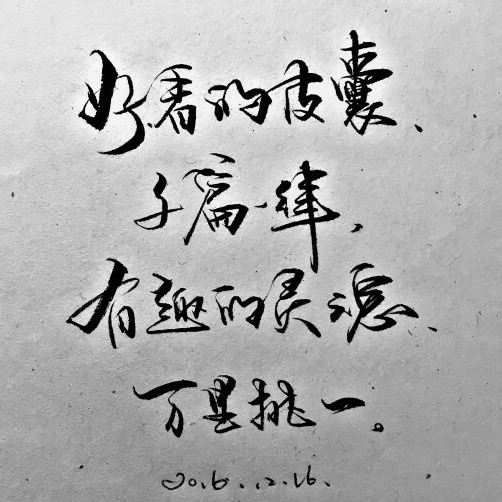 好看的皮囊、
千篇一律、
有趣的灵魂、
万里挑一。
2016.12.16.